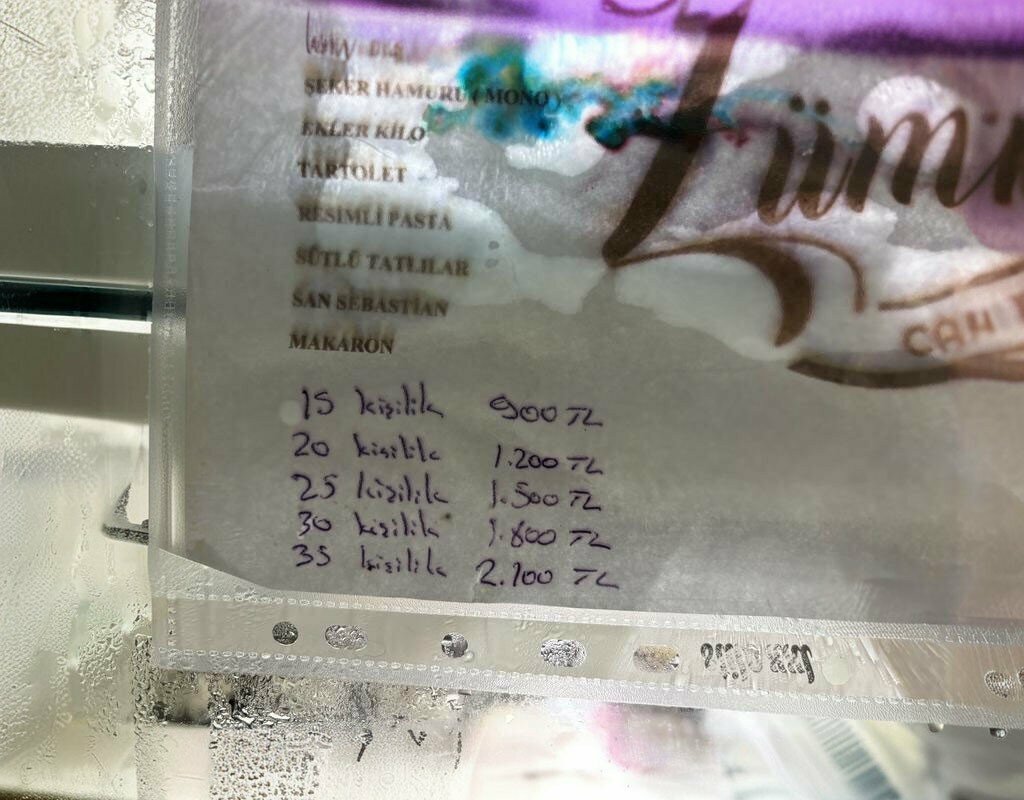 ŞEKER HAMURU (MONO)
EKLER KİLO
TARTOLET
RESİMLİ PASTA
SÜTLÜ TATLILAR
SAN SEBASTİAN
MAKARON
15 kişilik 900 TL
20 kişilik 1.200 TL
25 kişilik 1.500 TL
30 kişilik 1.800 TL
35 kişilik 2.100 TL